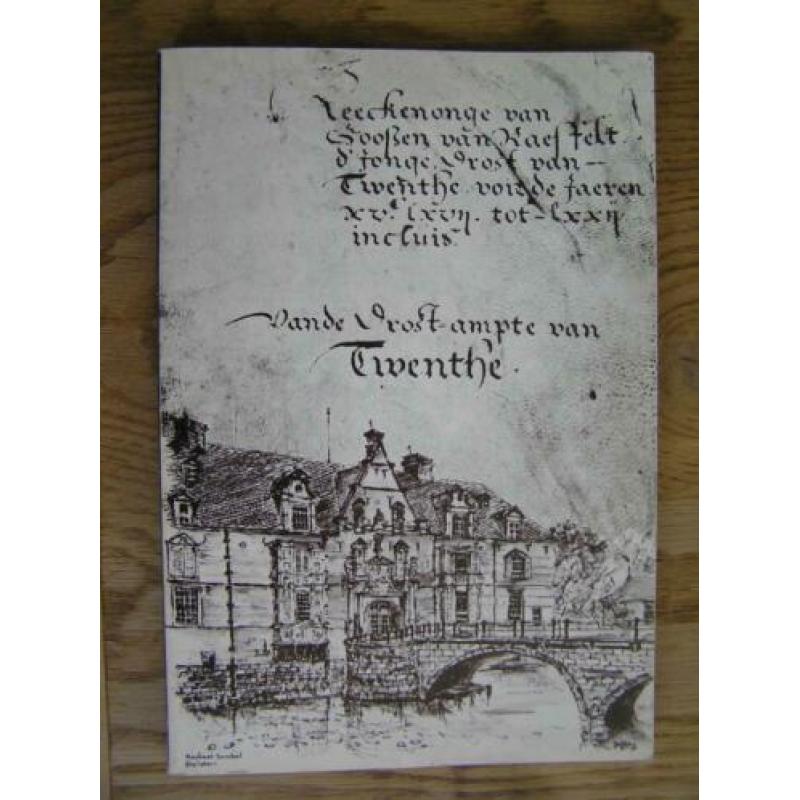 Reeckenonge van
Gooßen van Raesfelt
d' Jonge Drost van
Twenthe voir de Jaeren
xvͨ lxvij. tot lxxij
incluis.
Vande Drost-ampte van
Twenthe.